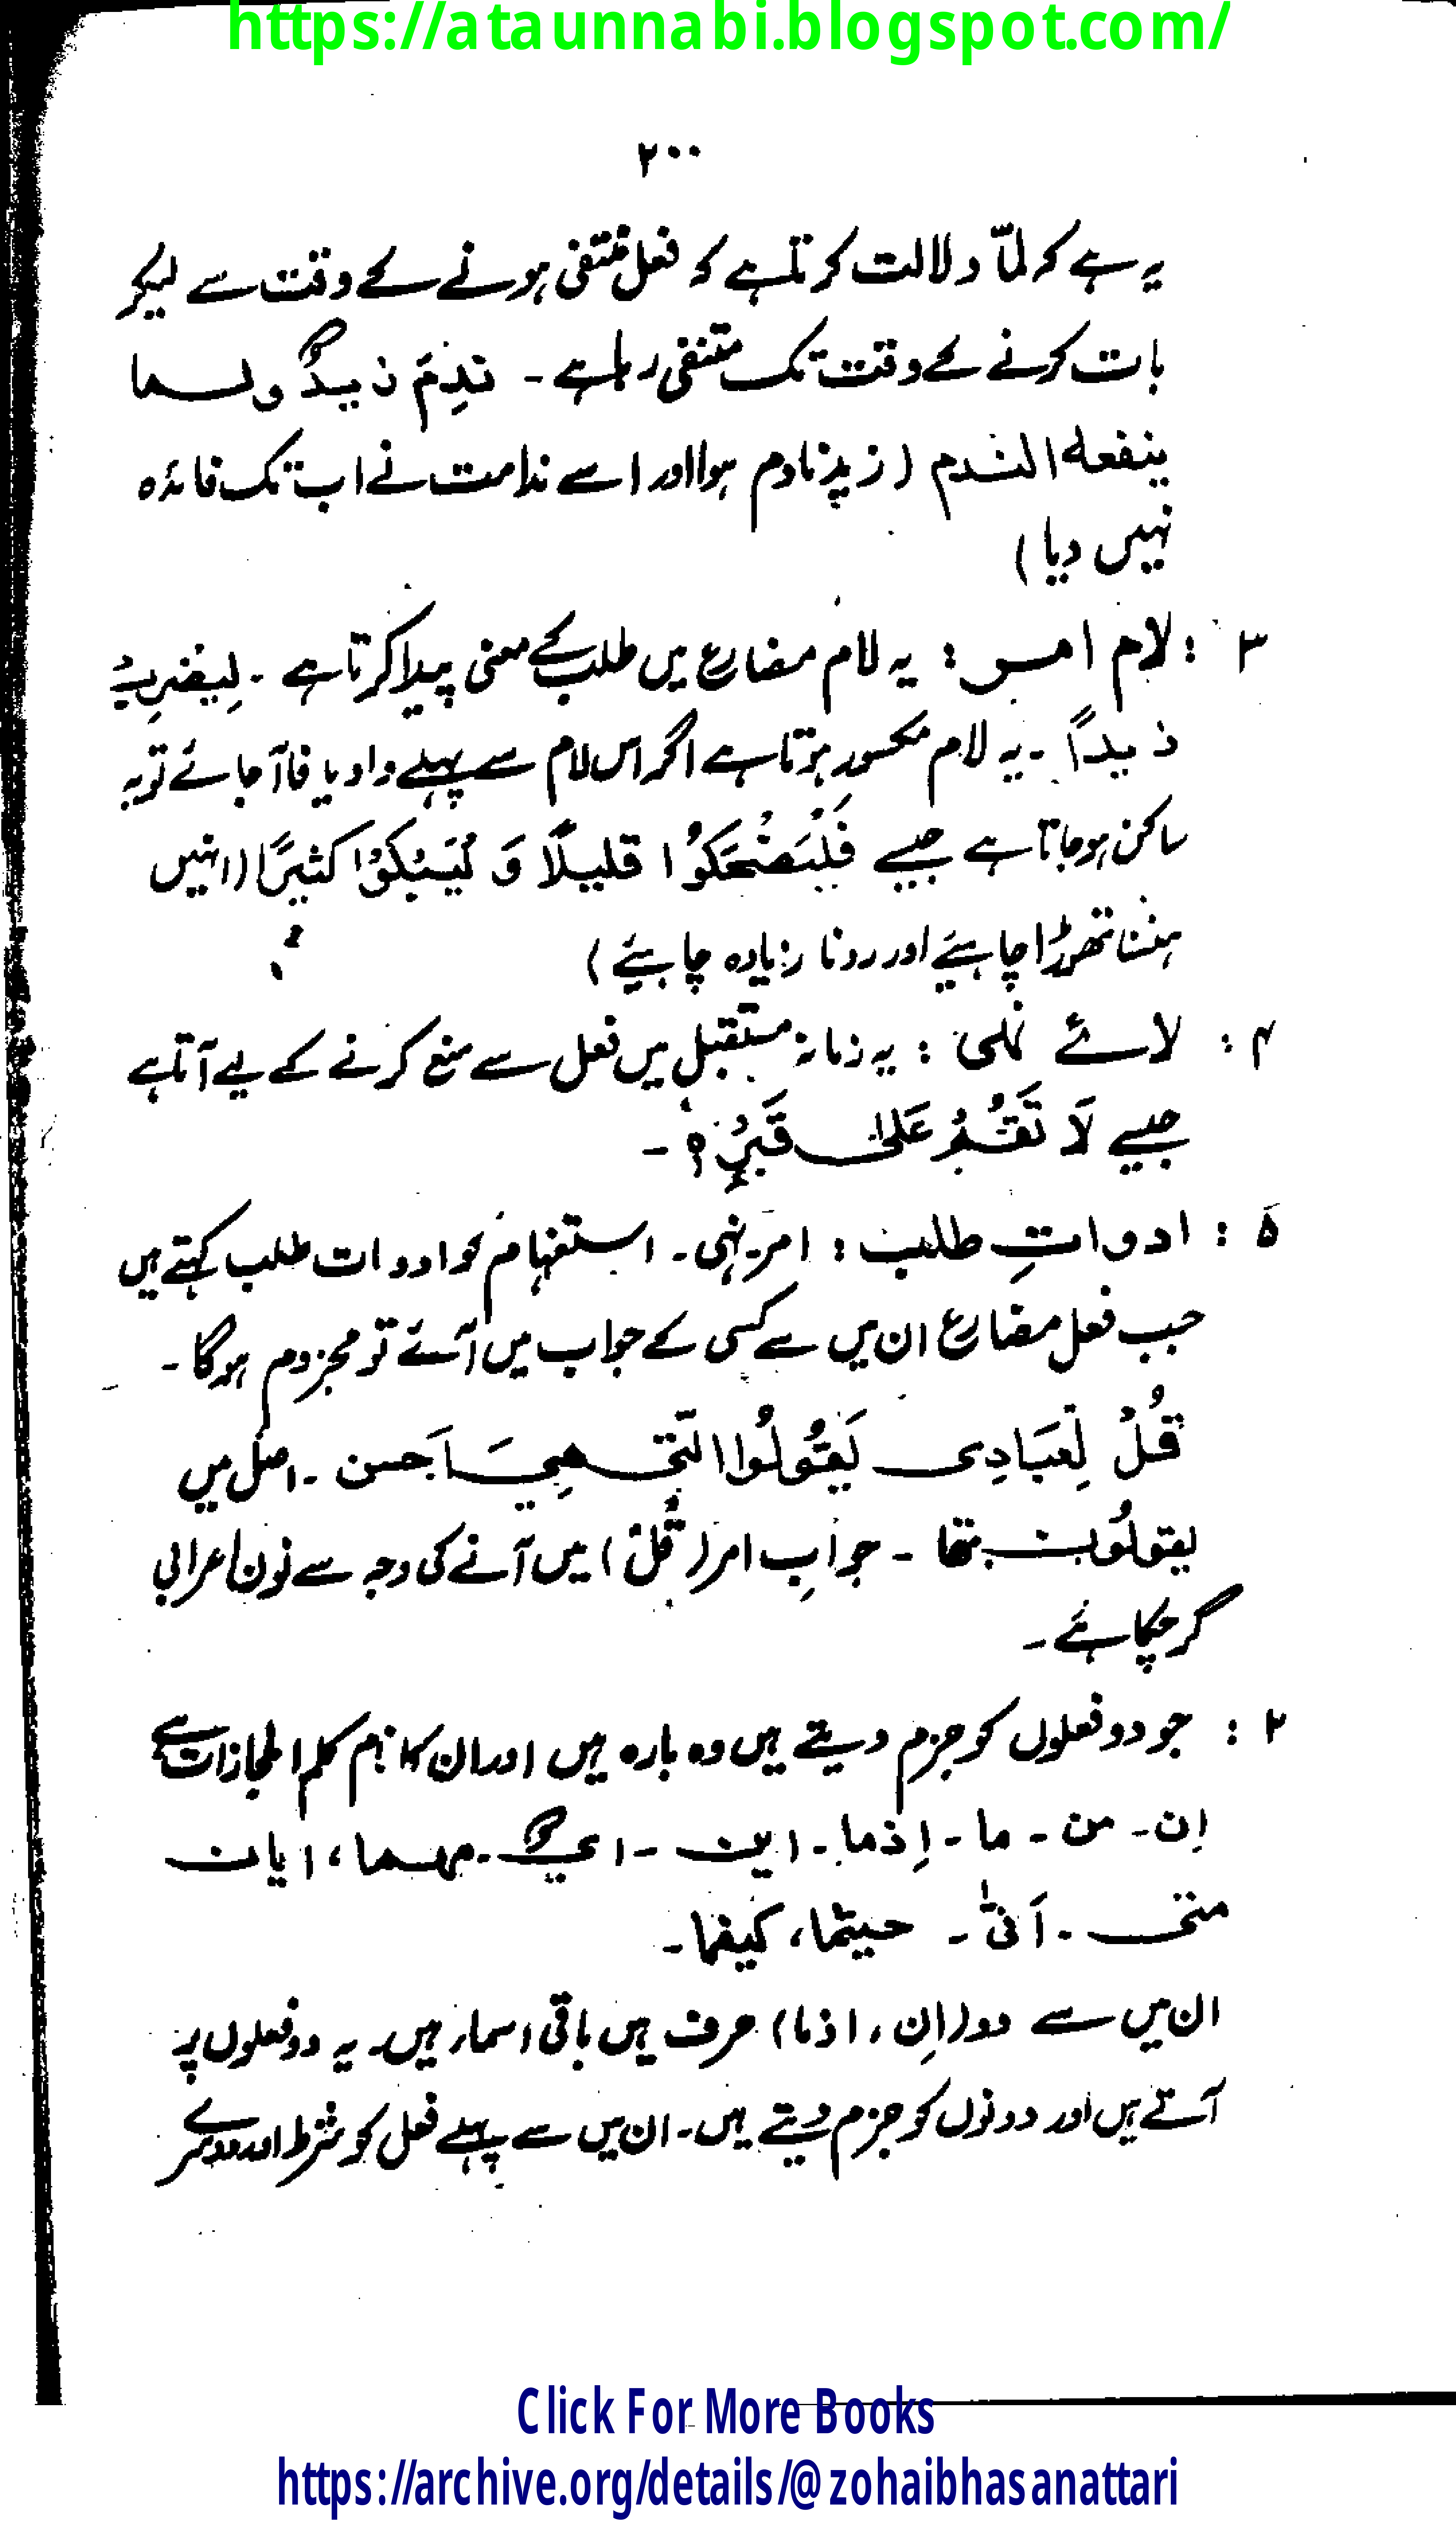 https://ataunnabi.blogspot.com/
٢٠٠
یہ ہے کہ لمّا دلالت کرتا ہے کہ فعل منتفی ہونے کے وقت سے لیکر
بات کرنے کے وقت تک منتفی رہا ہے - ندِمَ زیدٌ و لما
ینفعہ الندم (زید نادم ہوا اور اسے ندامت نے اب تک فائدہ
نہیں دیا)
٣ : لام امر : یہ لام مضارع میں طلب کے معنی پیدا کرتا ہے - لِیَضْرِبْ
زیداً - یہ لام مکسور ہوتا ہے اگر اس لام سے پہلے واو یا فا آجائے تو یہ
ساکن ہوجاتا ہے جیسے فَلْیَضْحَکُوْا قلیلًا وَ لْیَبْکُوْا کثیرًا (انہیں
ہنسنا تھوڑا چاہیئے اور رونا زیادہ چاہیئے)
۴ : لائے نہی : یہ زمانہ مستقبل میں فعل سے منع کرنے کے لیے آتا ہے
جیسے لَا تَقُمْ عَلٰی قَبْرِہٖ -
۵ : ادواتِ طلب : امر - نہی - استفہام کو ادوات طلب کہتے ہیں
جب فعل مضارع ان میں سے کسی کے جواب میں آئے تو مجزوم ہوگا -
قُلْ لِعِبَادِی یَقُولُوا الَّتِی ھِیَ اَحسن - اصل میں
یقولُون تھا - جوابِ امر (قُلْ) میں آنے کی وجہ سے نون اعرابی
گر چکا ہے -
٢ : جو دو فعلوں کو جزم دیتے ہیں وہ بارہ ہیں اور ان کا نام کلم المجازات ہے
اِن - من - ما - اِذما - این - ایُّ - مہما ، ایان
متی - اَنّٰی - حیثما ، کیفما -
ان میں سے دو (اِن ، اذما) حرف ہیں باقی اسماء ہیں۔ یہ دو فعلوں پر
آتے ہیں اور دونوں کو جزم دیتے ہیں - ان میں سے پہلے فعل کو شرط اور دوسرے
Click For More Books
https://archive.org/details/@zohaibhasanattari